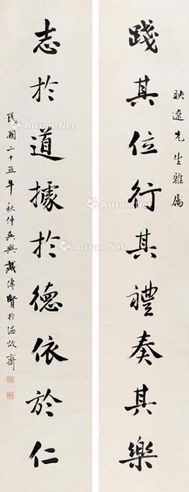 映先生雅屬
踐其位行其禮奏其樂
志於道據於德依於仁
民國二十五年秋仲吳興戴傳賢於故齋